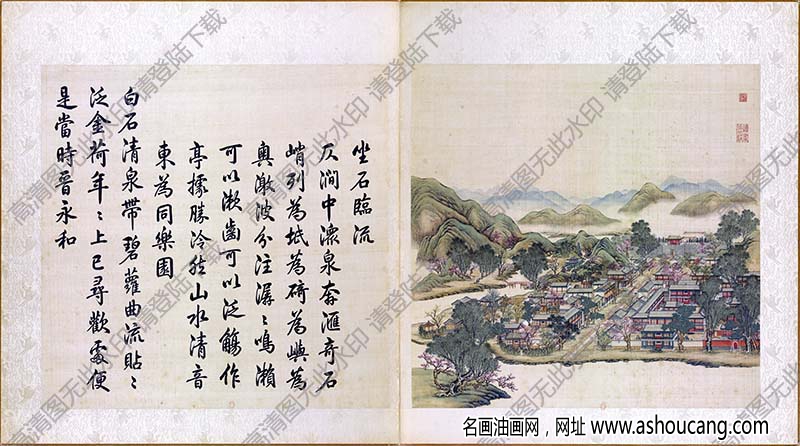 坐石臨流
仄澗中瀠泉奔滙奇石
峭列為坻為碕為嶼為
奧激波分注潺〻鳴瀨
可以漱齒可以泛觴作
亭據勝泠然山水清音
東為同樂園
白石清泉帶碧蘿曲流貼〻
泛金荷年〻上巳尋歡處便
是當時晉永和
高清图无此水印 请登陆下载
名画油画网，网址 www.ashoucang.com